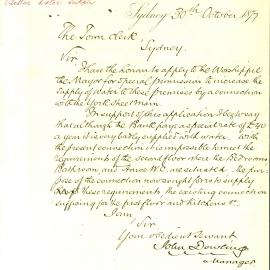 Better Water Supply
Sydney 30th October 1877
The Town Clerk
Sydney.
Sir
I have the honor to apply to the Worshipful
the Mayor for special permission to increase the
supply of water to these premises by a connection
with the York Street Main.
In support of this application I beg to say
that although the Bank pays a special rate of £40
a year it is very badly supplied with water. With
the present connection it is impossible to meet the
requirements of the second floor where the Bedrooms
Bathroom and W.C. are situated. The pur-
pose of the connection now sought for is to supply
these requirements, the existing connection
sufficing for the first floor and kitchens &c.
I am
Sir
Your obedient Servant
John Dowling
Manager